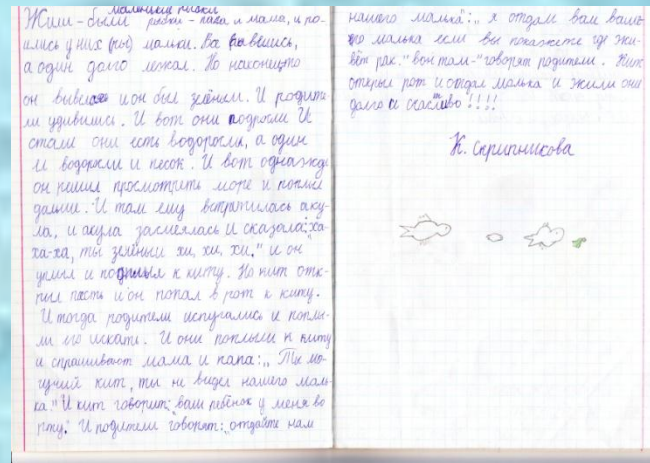 маленькие рыбки
Жили-были рыбки - папа и мама, и по-
ились у них (ры) мальки. Все
а один долго лежал. Но наконецто
он вывелся и он был зелёным. И родите
ли удивились. И вот они подросли И
стали они есть водоросли, а один
и водоросли и песок. И вот однажды
он решил просмотрить море и поплыл
дальше. И там ему встратилась аку-
ла, и акула засмеялась и сказала: „ха-
ха-ха, ты зелёный хи, хи, хи." и он
уплыл и подплыл к киту. Но кит отк-
рыл пасть и он попал в рот к киту.
И тогда родители испугались и поплы-
ли его искать. И они поплыли к киту
и спрашивают мама и папа: „Ты мо-
гучий кит, ты не видел нашего маль-
ка." И кит говорит: „ваш ребёнок у меня во
рту." И родители говорят: „отдайте нам
нашего малька": „я отдам вам ваше-
го малька если вы покажете где жи-
вёт рак." вон там-" говорят родители. Кит
открыл рот и отдал малька и жили они
долго и счастливо!!!!
К. Скрипникова